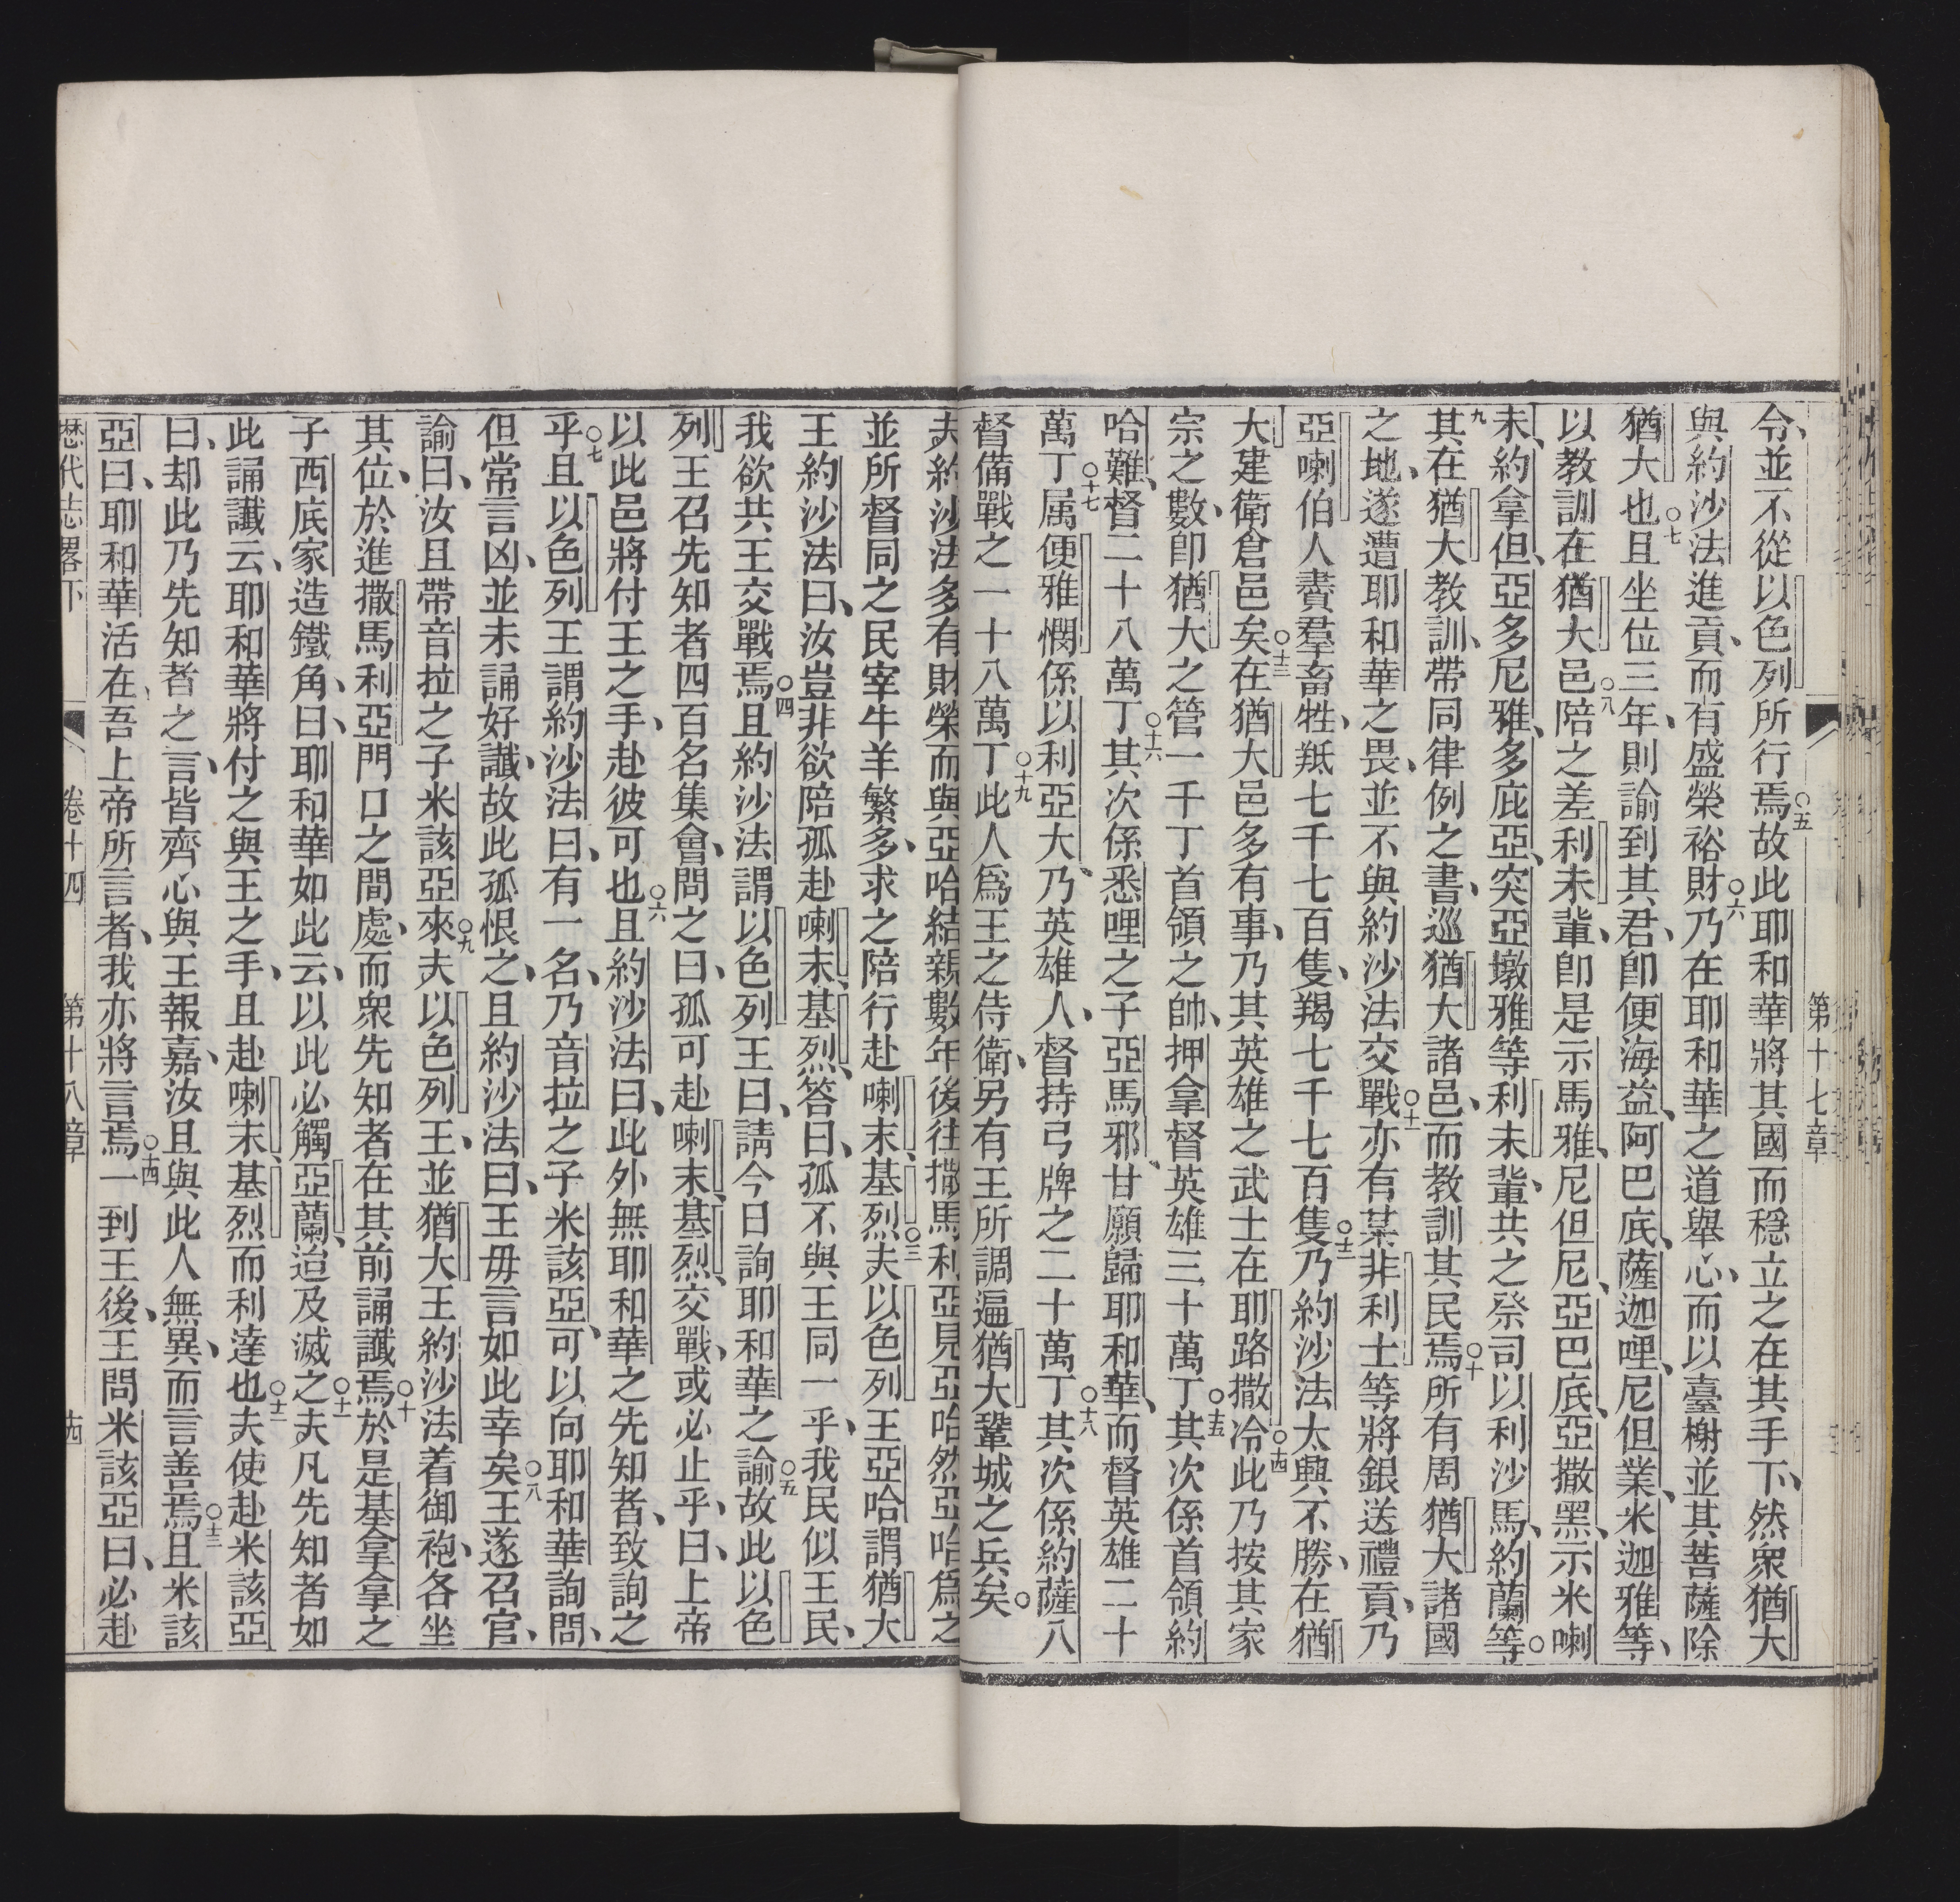 第十七章
令、並不從以色列所行焉○五故此耶和華將其國而穩立之在其手下、然衆猶大
與約沙法進貢、而有盛榮裕財○六乃在耶和華之道舉心、而以臺榭並其菩薩除
猶大也○七且坐位三年、則諭到其君、卽便海益、阿巴底、薩迦哩、尼但業、米迦雅等、
以教訓在猶大邑○八陪之差利未輩、卽是示馬雅、尼但尼、亞巴底、亞撒黑、示米喇
未、約拿但、亞多尼雅、多庇亞、突亞墩雅等利未輩、共之祭司以利沙馬、約蘭等○
九其在猶大教訓、帶同律例之書、巡猶大諸邑、而教訓其民焉○十所有周猶大諸國
之地、遂遭耶和華之畏、並不與約沙法交戰○十一亦有某非利士等將銀送禮貢、乃
亞喇伯人賷羣畜牲、羝七千七百隻、羯七千七百隻○十二乃約沙法太興不勝、在猶
大建衛倉邑矣○十三在猶大邑多有事、乃其英雄之武士在耶路撒冷○十四此乃按其家
宗之數、卽猶大之管一千丁首領之帥、押拿督英雄三十萬丁○十五其次係首領約
哈難、督二十八萬丁○十六其次係悉哩之子亞馬邪、甘願歸耶和華、而督英雄二十
萬丁○十七属便雅憫係以利亞大、乃英雄人、督持弓牌之二十萬丁○十八其次係約薩八
督備戰之一十八萬丁○十九此人爲王之侍衛、另有王所調遍猶大鞏城之兵矣○
夫約沙法多有財榮而與亞哈結親數年後往撒馬利亞見亞哈然亞哈爲之
並所督同之民宰牛羊繁多、求之陪行赴喇末、基烈○三夫以色列王亞哈謂猶大
王約沙法曰、汝豈非欲陪孤赴喇末、基烈、答曰、孤不與王同一乎、我民似王民、
我欲共王交戰焉○四且約沙法謂以色列王曰、請今日詢耶和華之諭○五故此以色
列王召先知者四百名集會、問之曰、孤可赴喇末、基烈、交戰、或必止乎、曰、上帝
以此邑將付王之手、赴彼可也○六且約沙法曰、此外無耶和華之先知者、致詢之
乎○七且以色列王謂約沙法曰、有一名、乃音拉之子米該亞、可以向耶和華詢問、
但常言凶、並未誦好讖、故此孤恨之、且約沙法曰、王毋言如此幸矣○八王遂召官、
諭曰、汝且帶音拉之子米該亞來○九夫以色列王、並猶大王約沙法着御袍、各坐
其位、於進撒馬利亞門口之間處、而衆先知者在其前誦讖焉○十於是基拿拿之
子西底家造鐵角、曰、耶和華如此云、以此必觸亞蘭、迨及滅之○十一夫凡先知者如
此誦讖云、耶和華將付之與王之手、且赴喇末、基烈而利達也○十二夫使赴米該亞
曰、却此乃先知者之言、皆齊心與王報嘉、汝且與此人無異、而言善焉○十三且米該
亞曰、耶和華活在、吾上帝所言者、我亦將言焉○十四一到王後、王問米該亞曰、必赴
歷代志畧下 卷十四 第十八章 十四